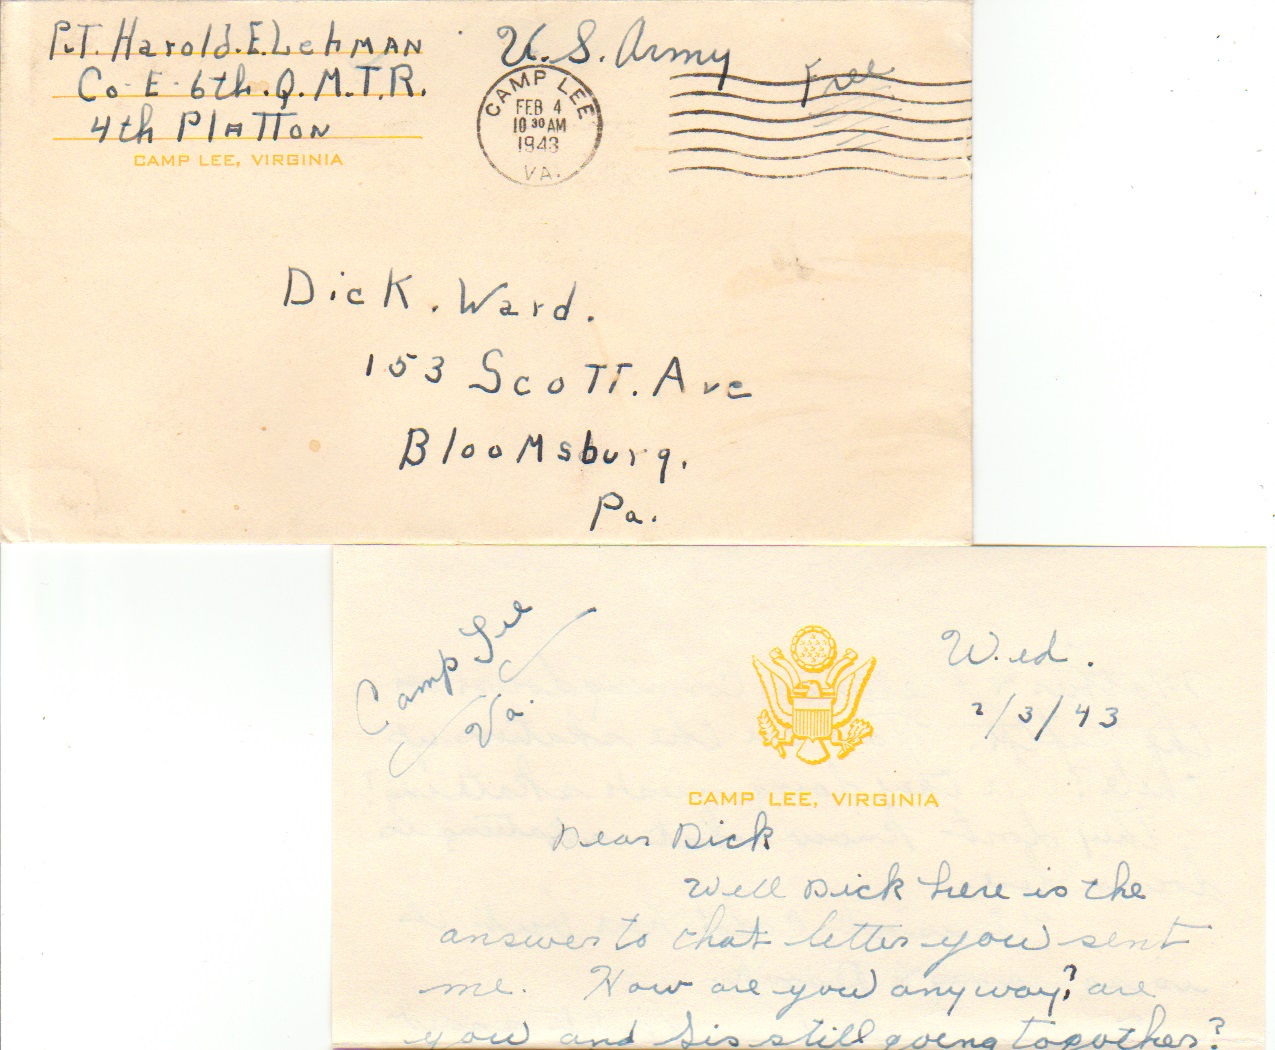 P.T. Harold.E.Lehman
Co-E-6th.Q.M.T.R.
4th Platton
CAMP LEE, VIRGINIA
U.S. Army
Free
CAMP LEE
FEB 4
10 30 AM
1943
VA.
Dick. Ward.
153 Scott. Ave
Bloomsburg.
Pa.
Camp Lee
Va.
W.ed.
2/3/43
CAMP LEE, VIRGINIA
Dear Dick
Well Dick here is the
answer to that letter you sent
me. How are you anyway? are
you and Sis still going togother?